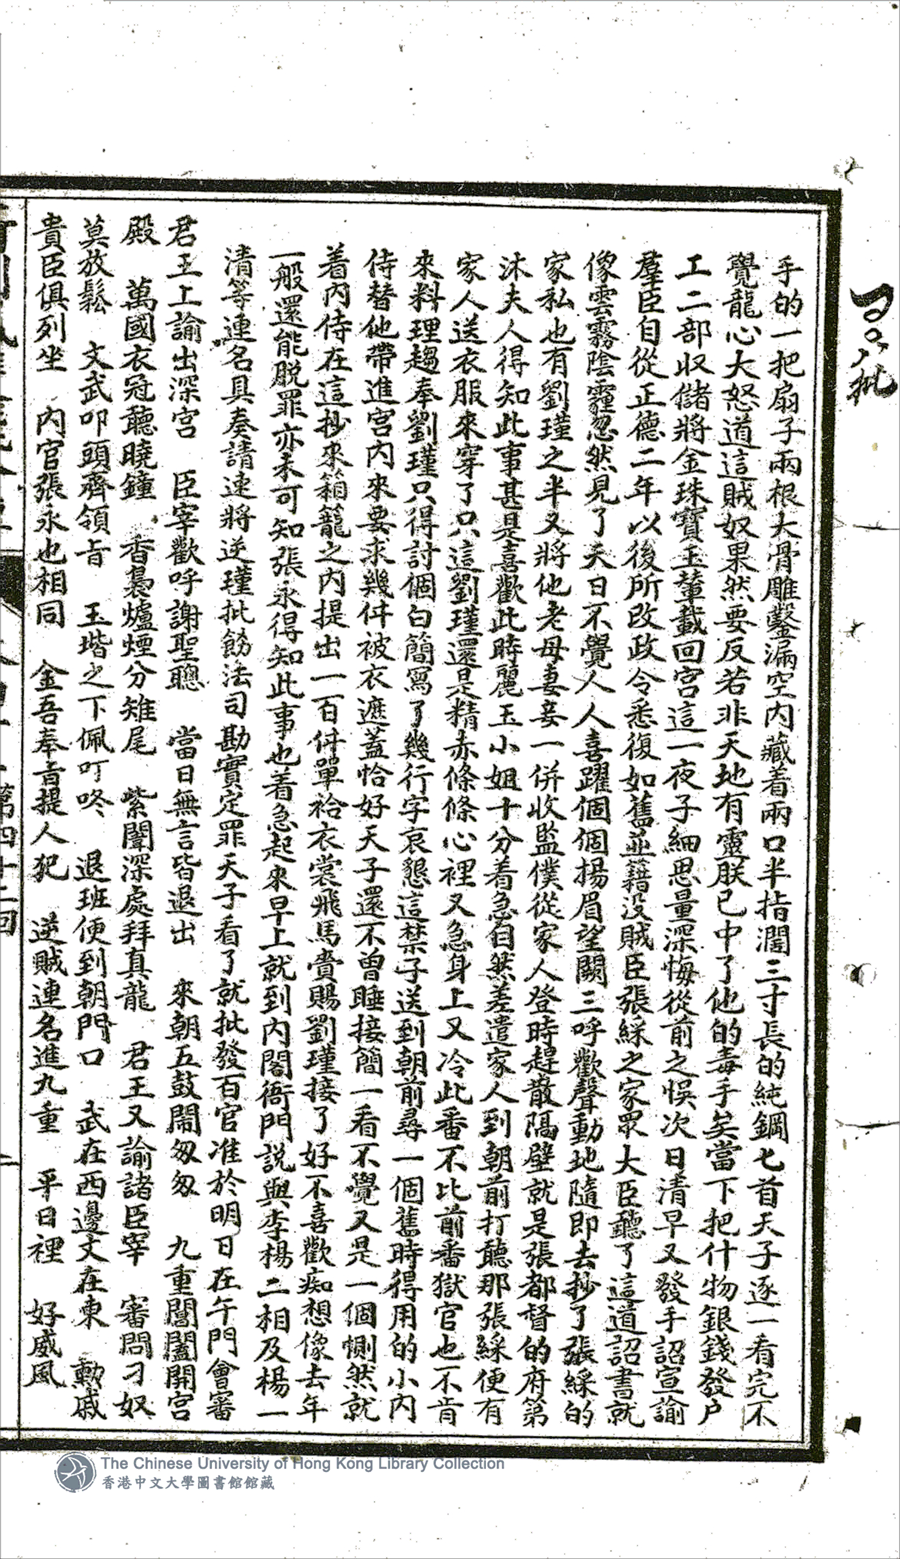 手的一把扇子兩根大骨雕鑿漏空內藏着兩口半指濶三寸長的純鋼匕首天子逐一看完不
覺龍心大怒道這賊奴果然要反若非天地有靈朕已中了他的毒手矣當下把什物銀錢發户
工二部收儲將金珠寶玉輦載回宮這一夜子細思量深悔從前之悞次日清早又發手詔宣諭
羣臣自從正德二年以後所改政令悉復如舊並籍没賊臣張綵之家眾大臣聽了這道詔書就
像雲霧陰霾忽然見了天日不覺人人喜躍個個揚眉望闕三呼歡聲動地隨即去抄了張綵的
家私也有劉瑾之半又將他老母妻妾一併收監僕從家人登時趕散隔壁就是張都督的府第
沐夫人得知此事甚是喜歡此時麗玉小姐十分着急自然差遣家人到朝前打聽那張綵便有
家人送衣服來穿了只這劉瑾還是精赤條條心裡又急身上又冷此番不比前番獄官也不肯
來料理趨奉劉瑾只得討個白簡寫了幾行字哀懇這禁子送到朝前尋一個舊時得用的小內
侍替他帶進宮內來要求幾件被衣遮蓋恰好天子還不曾睡接簡一看不覺又是一個惻然就
着內侍在這抄來箱籠之內提出一百件單袷衣裳飛馬賫賜劉瑾接了好不喜歡痴想像去年
一般還能脫罪亦未可知張永得知此事也着急起來早上就到內閣衙門説與李楊二相及楊一
清等連名具奏請速將逆瑾批餝法司勘實定罪天子看了就批發百官准於明日在午門會審
君王上諭出深宮　臣宰歡呼謝聖聰　當日無言皆退出　來朝五鼓鬧匆匆　九重閶闔開宮
殿　萬國衣冠聽曉鐘　香裊爐煙分雉尾　紫闈深處拜真龍　君王又諭諸臣宰　審問刁奴
莫放鬆　文武叩頭齊領旨　玉堦之下佩叮咚　退班便到朝門口　武在西邊文在東　勳戚
貴臣俱列坐　內官張永也相同　金吾奉旨提人犯　逆賊連名進九重　平日裡　好威風
第四十二回
批
The Chinese University of Hong Kong Library Collection
香港中文大學圖書館館藏